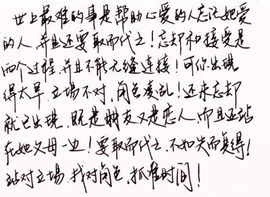 世上最难的事是帮助心爱的人忘记她爱
的人并且还要取而代之！忘却和接受是
两个过程，并且不能无缝连接！可你出现
得太早，立场不对，角色凌乱！还未忘却
就已出现，既是朋友又是恋人，而且还站
在她父母一边！要取而代之，不如失而复得！
站对立场，找对角色，抓准时间！